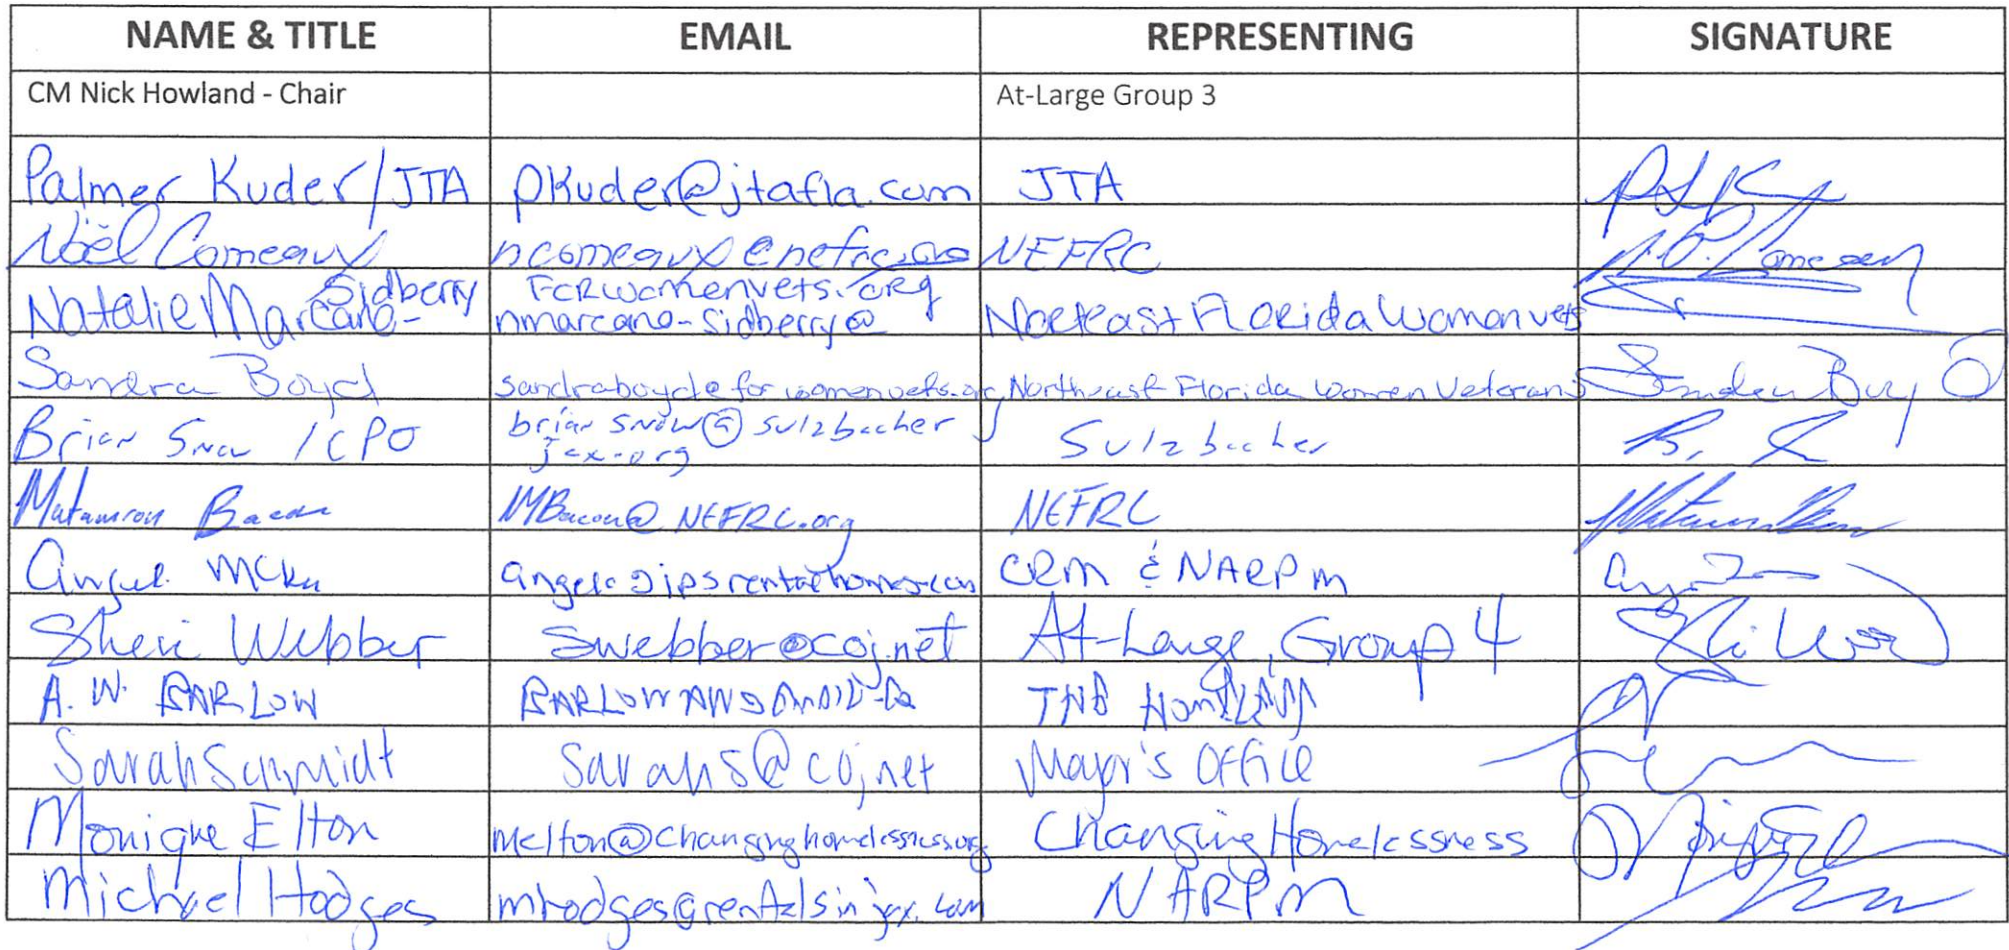 NAME & TITLE EMAIL REPRESENTING SIGNATURE
CM Nick Howland - Chair At-Large Group 3
Palmer Kuder/JTA pkuder@jtafla.com JTA
Noël Comeaux ncomeaux@nefrc.org NEFRC
Sidberry Forwomenvets.org
Natalie Marcano- nmarcano-sidberry@ Northeast Florida Women vets
Sandra Boyd sandraboyd@forwomenvets.org Northeast Florida Women Veterans
Brian Snow / CPO briansnow@sulzbacher Sulzbacher
jax.org
Bacon MBacon@NEFRC.org NEFRC
Angel CRM & NARPM
Sheri Webber swebber@coj.net At-Large, Group 4
A. W. BARLOW
Sarah Schmidt sarahs@coj.net Mayor's Office
Monique Elton melton@changinghomelessness.org Changing Homelessness
Michael Hodges mhodges@rentalsinjax.com NARPM